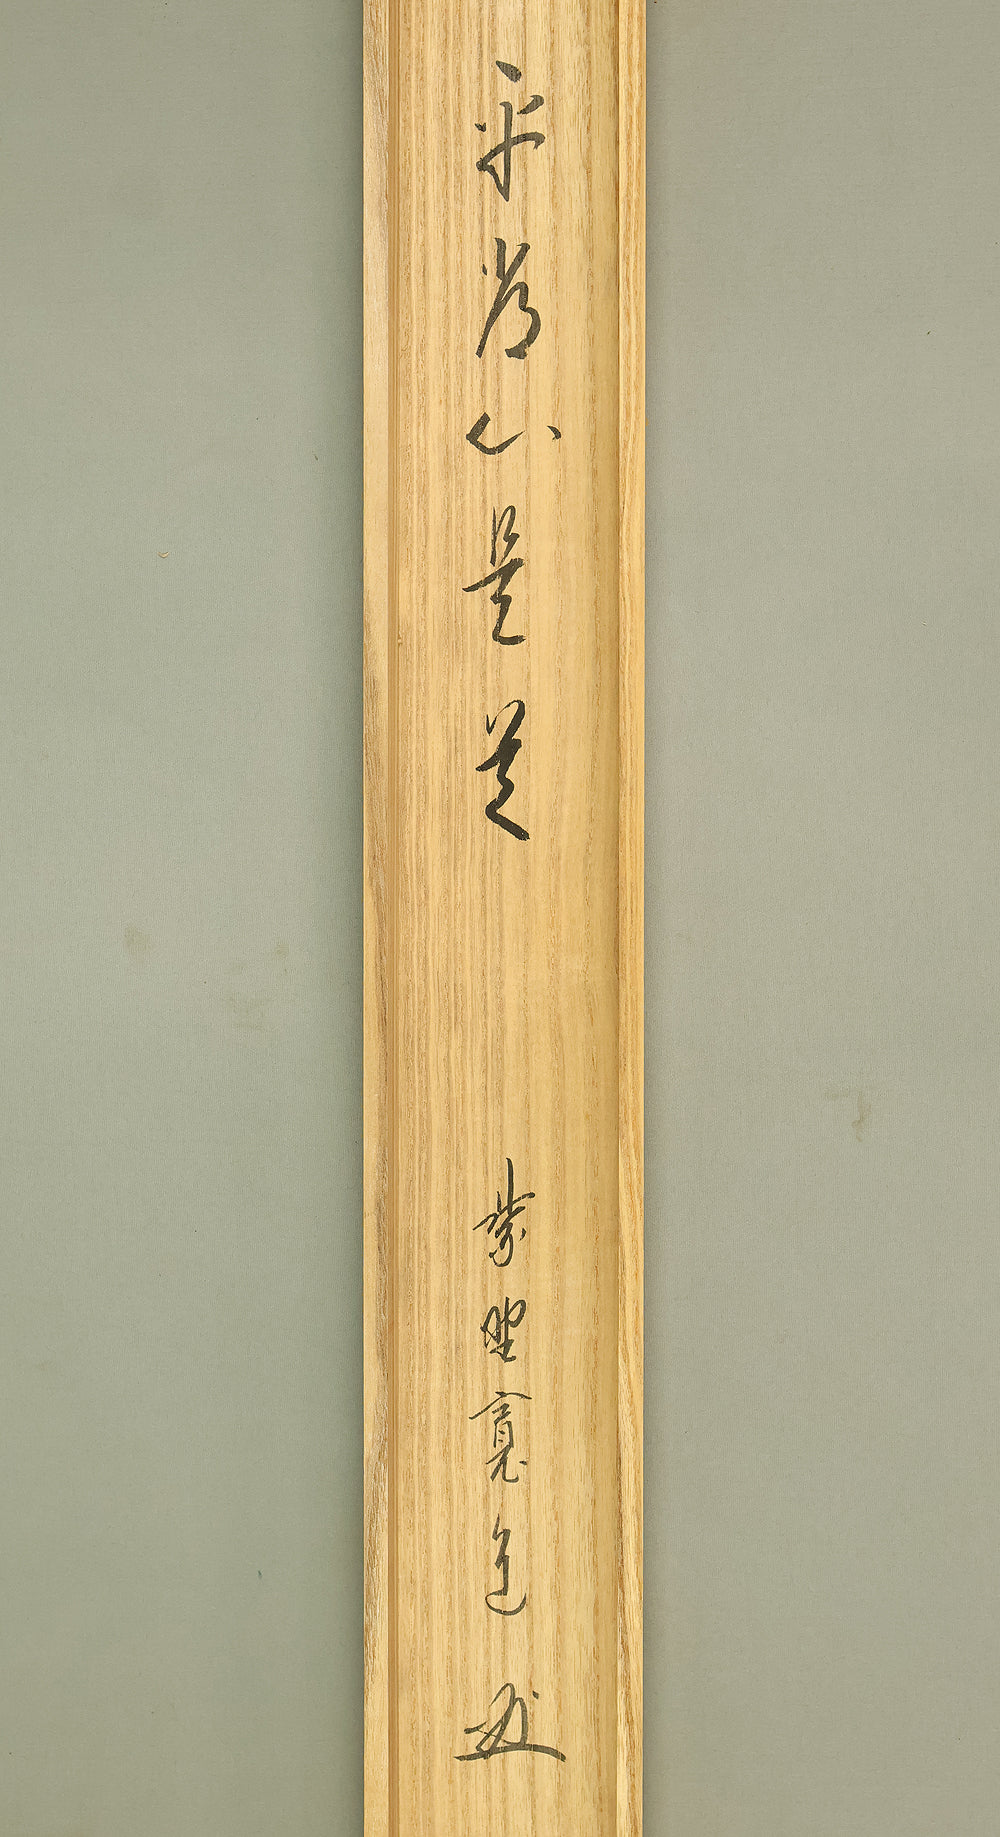 平常心是道
紫野寛道